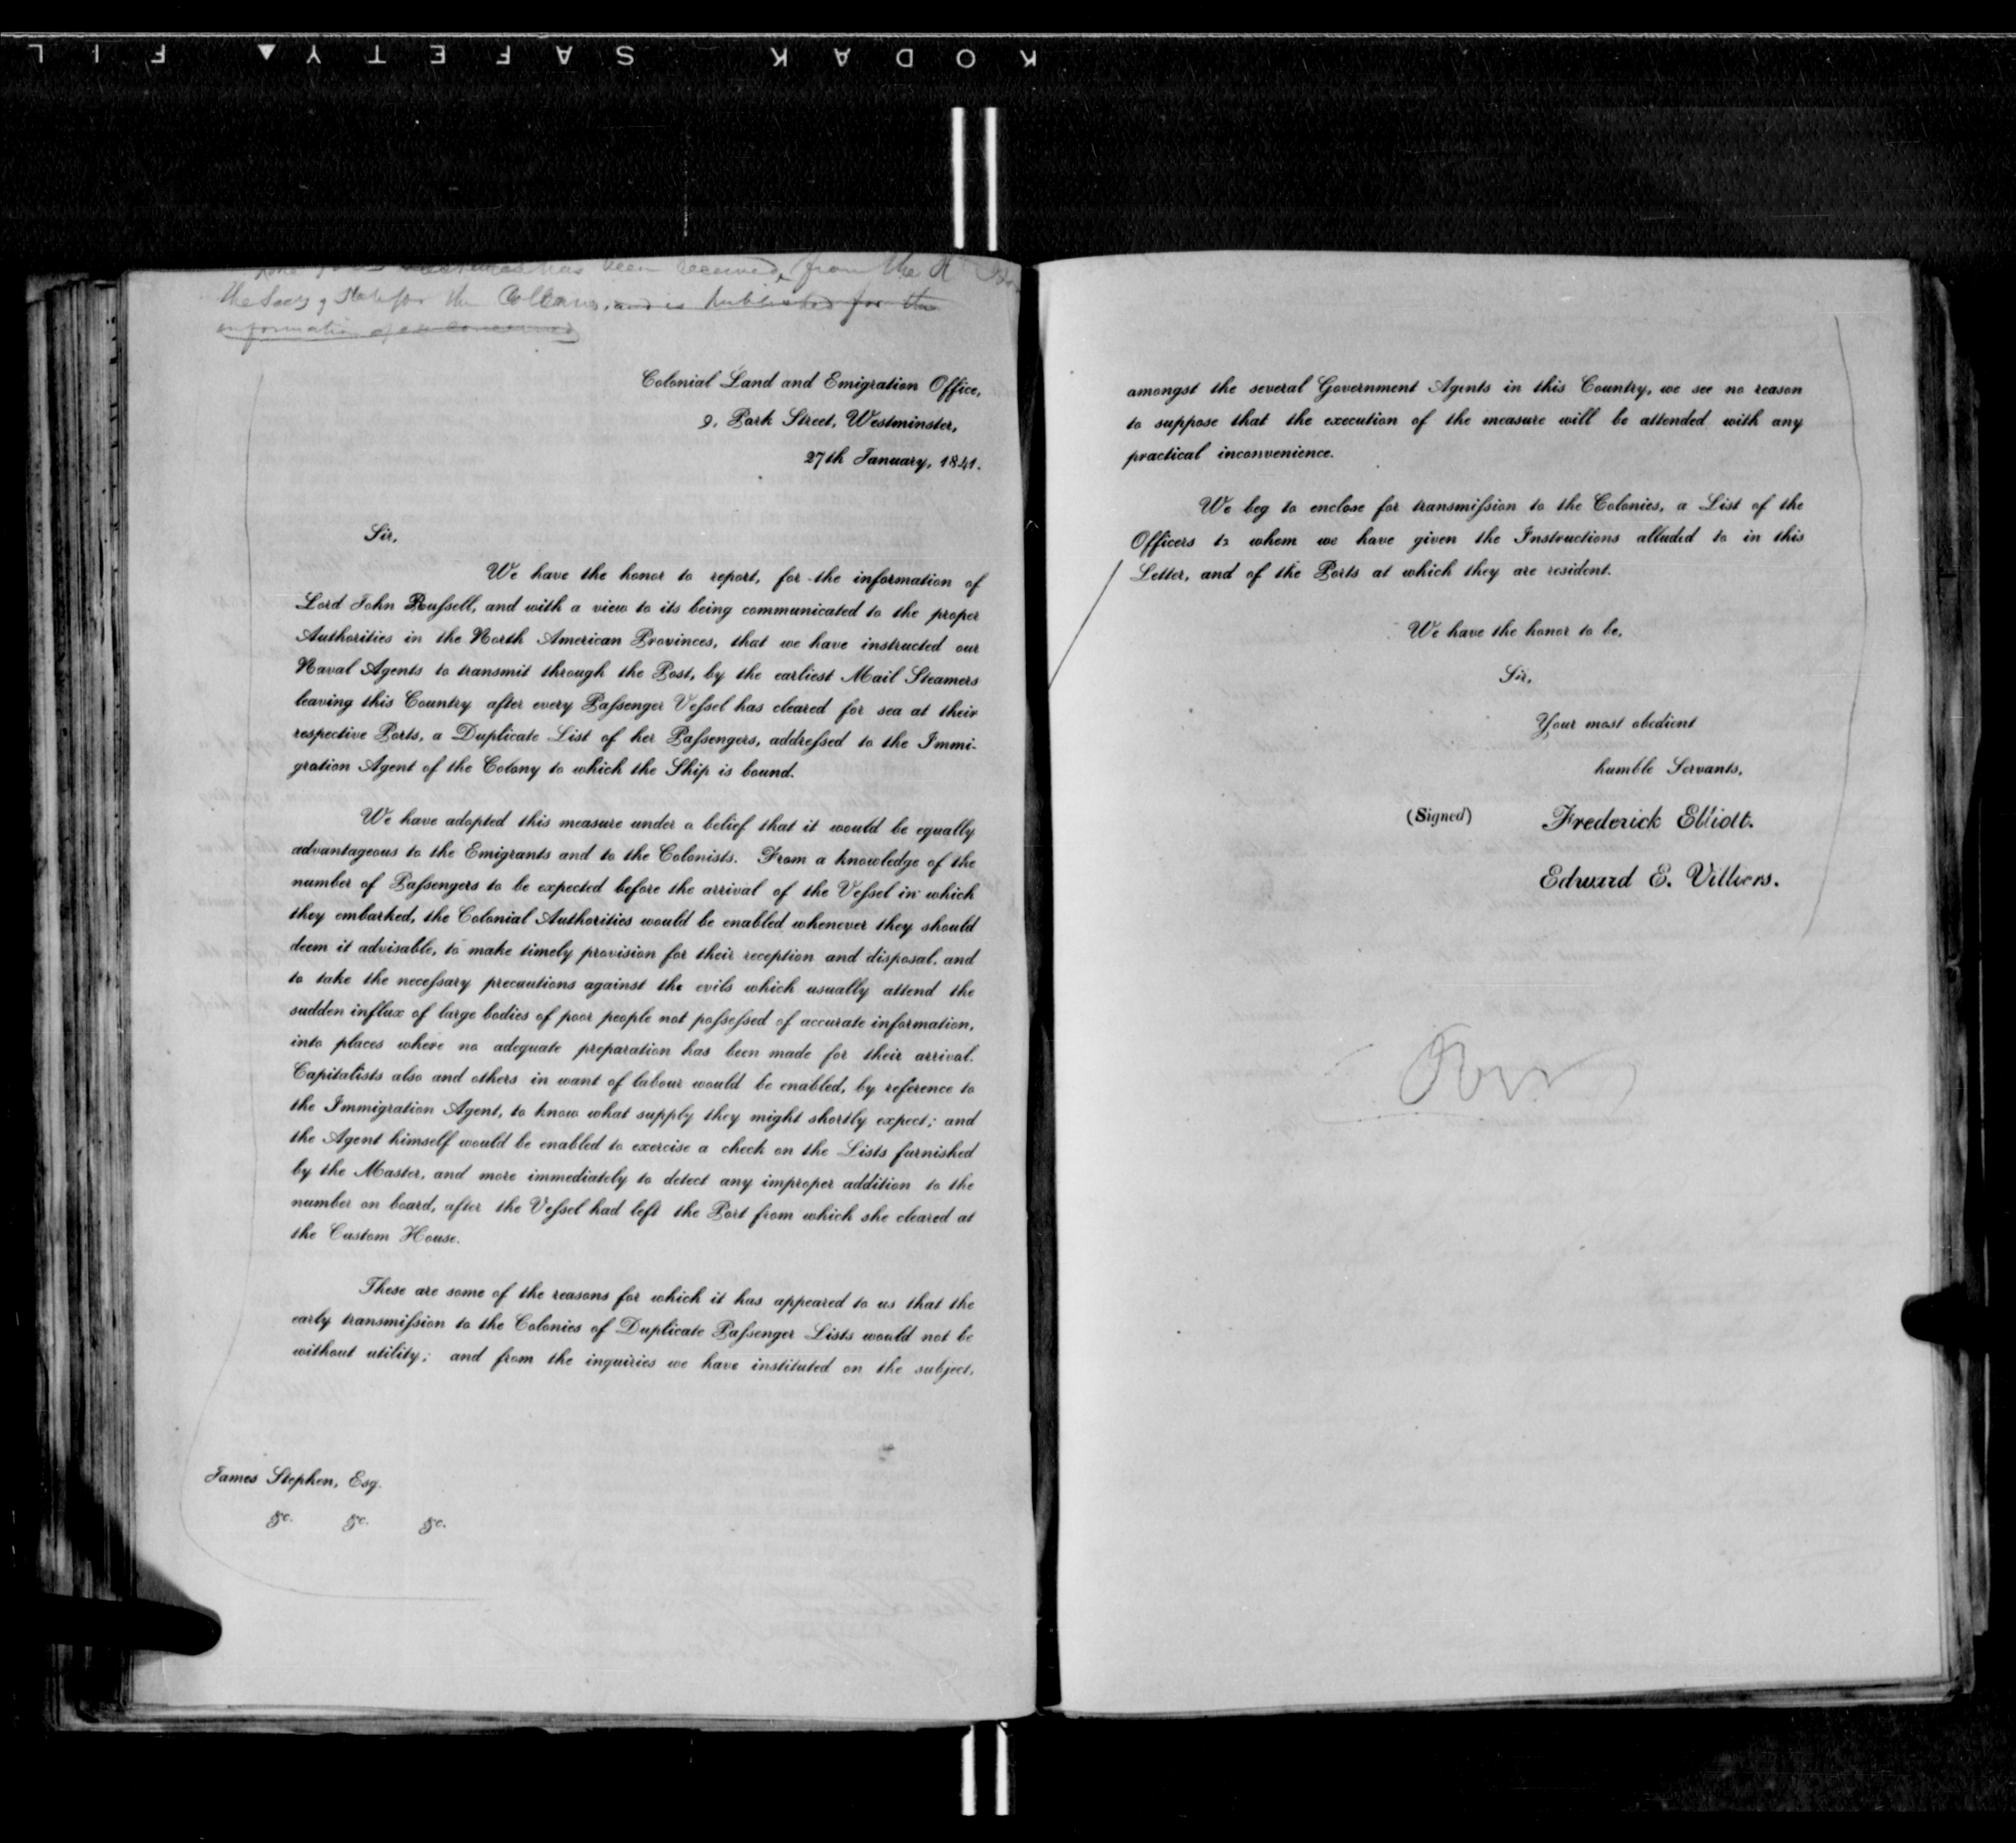 KODAK SAFETY FIL
has been received from the
the Secy of State for the Colonies, and is published for the
information of all concerned
Colonial Land and Emigration Office,
9. Park Street, Westminster,
27th January, 1841.
Sir,
We have the honor to report, for the information of
Lord John Rufsell, and with a view to its being communicated to the proper
Authorities in the North American Provinces, that we have instructed our
Naval Agents to transmit through the Post, by the earliest Mail Steamers
leaving this Country after every Pafsenger Vefsel has cleared for sea at their
respective Ports, a Duplicate List of her Pafsengers, addrefsed to the Immi-
gration Agent of the Colony to which the Ship is bound.
We have adopted this measure under a belief that it would be equally
advantageous to the Emigrants and to the Colonists. From a knowledge of the
number of Pafsengers to be expected before the arrival of the Vefsel in which
they embarked, the Colonial Authorities would be enabled whenever they should
deem it advisable, to make timely provision for their reception and disposal, and
to take the necefsary precautions against the evils which usually attend the
sudden influx of large bodies of poor people not pofsefsed of accurate information,
into places where no adequate preparation has been made for their arrival.
Capitalists also and others in want of labour would be enabled, by reference to
the Immigration Agent, to know what supply they might shortly expect; and
the Agent himself would be enabled to exercise a check on the Lists furnished
by the Master, and more immediately to detect any improper addition to the
number on board, after the Vefsel had left the Port from which she cleared at
the Custom House.
These are some of the reasons for which it has appeared to us that the
early transmifsion to the Colonies of Duplicate Pafsenger Lists would not be
without utility; and from the inquiries we have instituted on the subject,
James Stephen, Esq.
&c. &c. &c.
amongst the several Government Agents in this Country, we see no reason
to suppose that the execution of the measure will be attended with any
practical inconvenience.
We beg to enclose for transmifsion to the Colonies, a List of the
Officers to whom we have given the Instructions alluded to in this
Letter, and of the Ports at which they are resident.
We have the honor to be,
Sir,
Your most obedient
humble Servants,
(Signed) Frederick Elliott.
Edward E. Villiers.